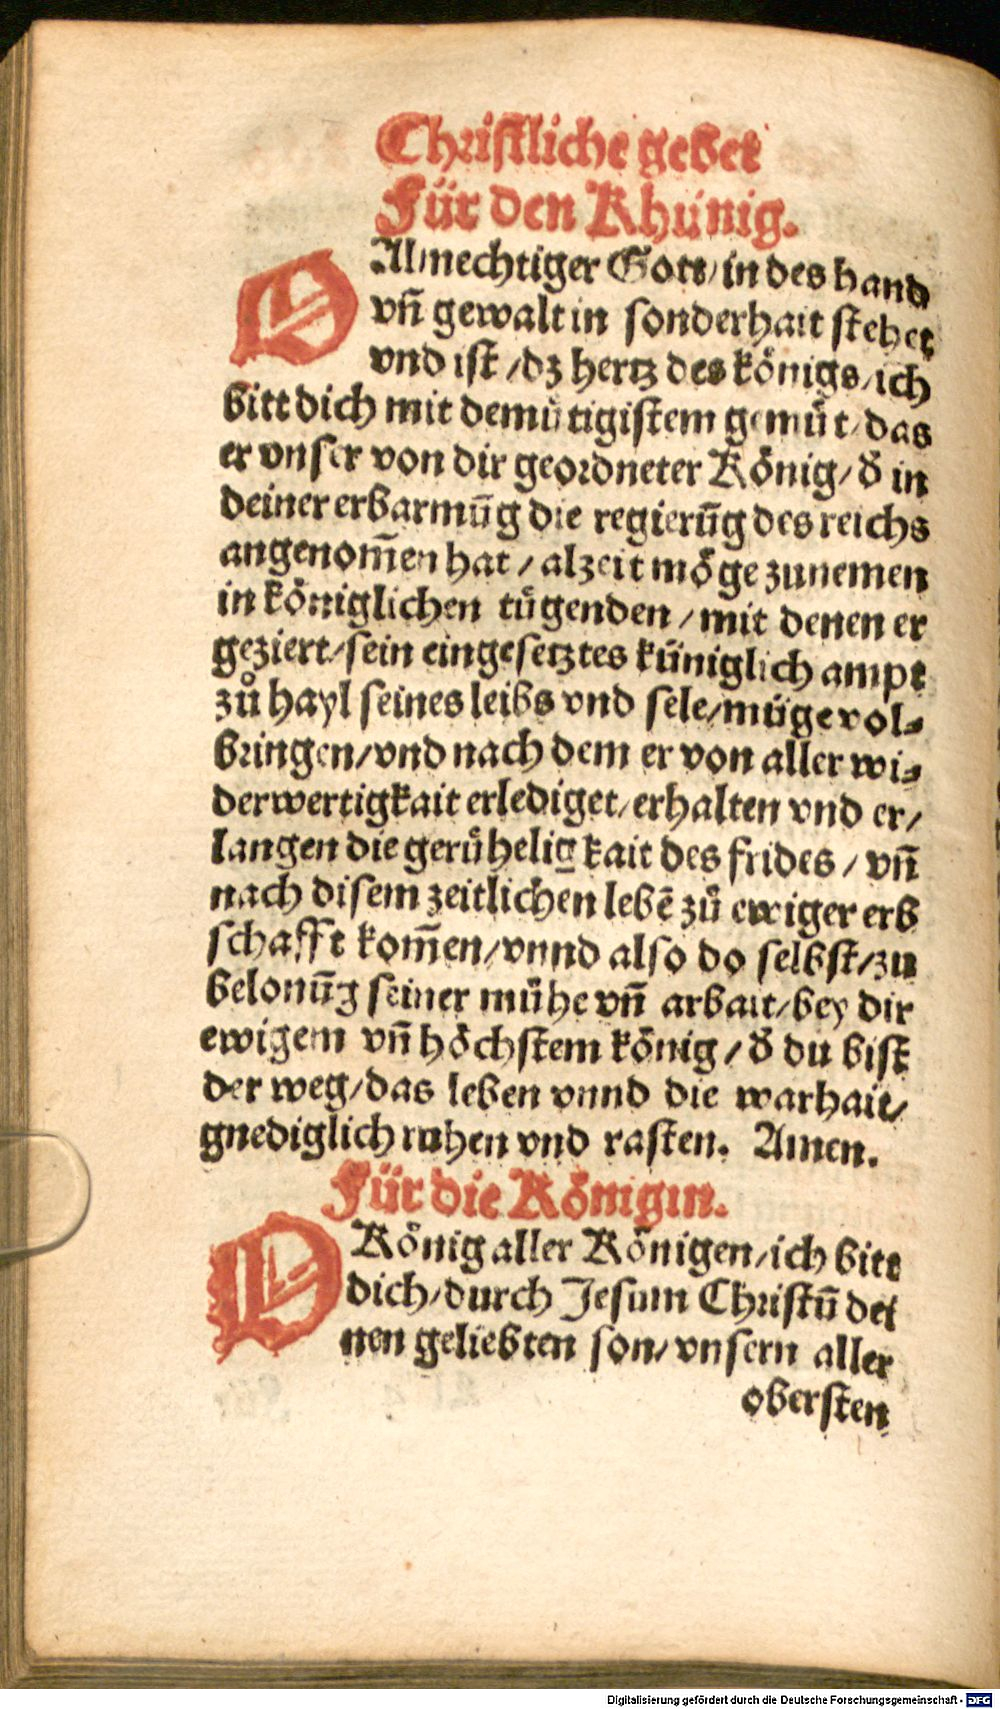 Christliche gebet
Für den Khünig.
O Almechtiger Gott/ in des hand
vñ gewalt in sonderhait stehet
vnd ist /dz hertz des königs/ ich
bitt dich mit demütigistem gemüt/ das
er vnser von dir geordneter König/ d̕ in
deiner erbarmūg die regierūg des reichs
angenom̄en hat / alzeit möge zunemen
in königlichen tügenden / mit denen er
geziert/ sein eingesetztes küniglich ampt
zů hayl seines leibs vnd sele/ müge vol⸗
bringen/ vnd nach dem er von aller wi⸗
derwertigkait erlediget/ erhalten vnd er/
langen die gerůheligkait des frides / vñ
nach disem zeitlichen lebē zů ewiger erb
schafft kom̄en/ vnnd also do selbst/ zu
belonūg seiner mühe vñ arbait/ bey dir
ewigem vñ höchstem könig / d̕ du bist
der weg/ das leben vnnd die warhait/
gnediglich ruhen vnd rasten. Amen.
Für die Königin.
O König aller Königen/ ich bitt
dich/ durch Jesum Christū dei
nen geliebten son/ vnsern aller
obersten
Digitalisierung gefördert durch die Deutsche Forschungsgemeinschaft - DFG